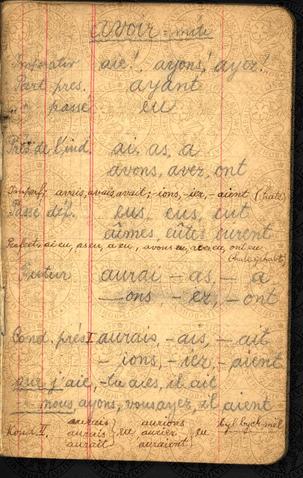 avoir = míti
Imperativ aie! ayons! ayez!
Part. pres. ayant
" passé eu
Prés de l'ind. ai, as, a
avons, avez, ont
Imparf: avais, avais, avait; -ions, -iez, -aient
Passé déf. eus, eus, eut
eûmes, eûtes eurent
ai eu, as eu, a eu, avons eu, eu, ont eu
Futur aurai - as, - a
- ons - ez, - ont
Cond. prés I aurais, - ais, - ait
- ions, - iez, - aient
que j'aie, - tu aies, il ait
nous ayons, vous ayez, il aient
Kond. II. aurais aurions byl bych měl
aurais } eu auriez eu
aurait auraient